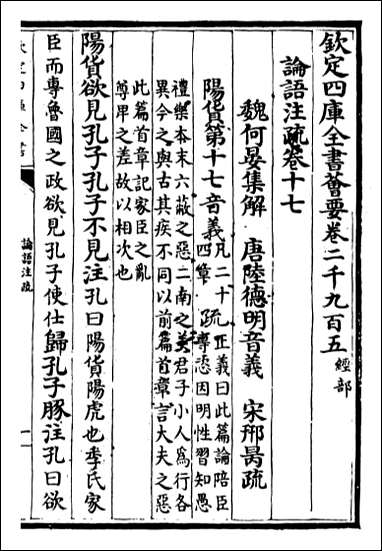 欽定四庫全書薈要卷二千九百五 經部
論語注疏卷十七
魏何晏集解 唐陸德明音義 宋邢昺疏
陽貨第十七音義凡二十四章 疏正義曰此篇論陪臣專恣因明性習知愚
禮樂本末六蔽之惡二南之美君子小人為行各
異今之與古其疾不同以前篇首章言大夫之惡
此篇首章記家臣之亂
尊卑之差故以相次也
陽貨欲見孔子孔子不見注孔曰陽貨陽虎也季氏家
臣而專魯國之政欲見孔子使仕歸孔子豚注孔曰欲
論語注疏
一